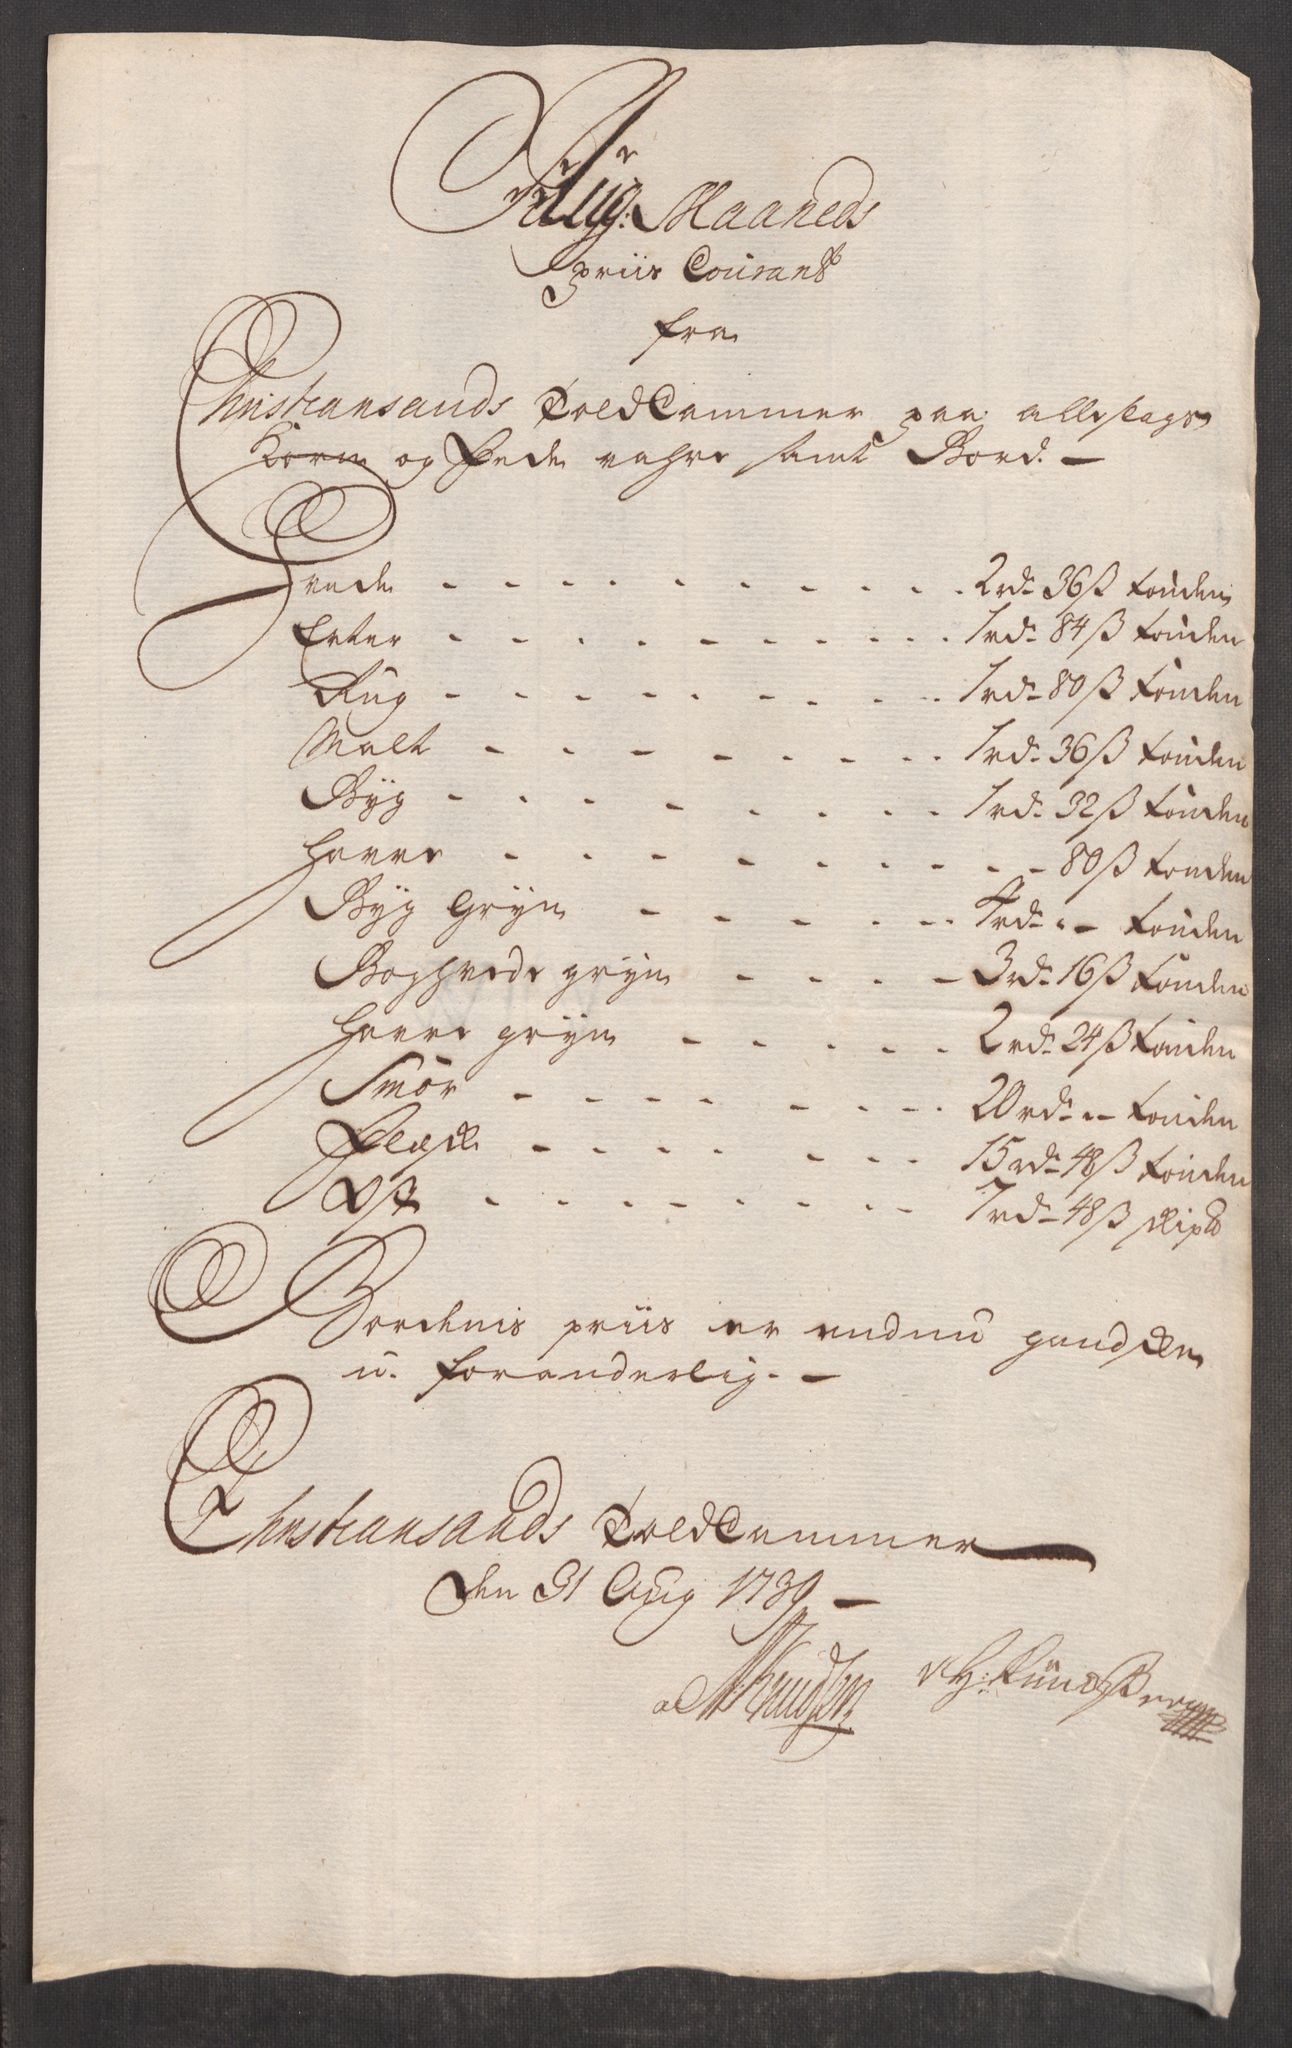 Aug: Maaneds
priis Courant
fra
Christiansands Told Cammer paa alle slags
Korn og Fede vahre samt Bord. —
Hvede - - - - - - - - 2 rd. 36 ß tønden
Erter - - - - - - - - 1 rd. 84 ß tønden
Rug - - - - - - - - 1 rd. 80 ß tønden
Malt - - - - - - - 1 rd. 36 ß tønden
Byg - - - - - - - - 1 rd. 32 ß tønden
Havre - - - - - - - - 80 ß tønden
Byg Gryn - - - - - - 4 rd. - tønden
Boghvede gryn - - - - 3 rd. 16 ß tønden
Havre gryn - - - - - 2 rd. 24 ß tønden
Smør - - - - - - - 20 rd. - tønden
Flesk - - - - - - - 15 rd. 48 ß tønden
Ost - - - - - - - - 7 rd. 48 ß skip℔
Bordenis priis er endnu gandske
u-foranderlig. —
Christiansands Told Cammer
den 31 Aug 1739 —
Knudsen